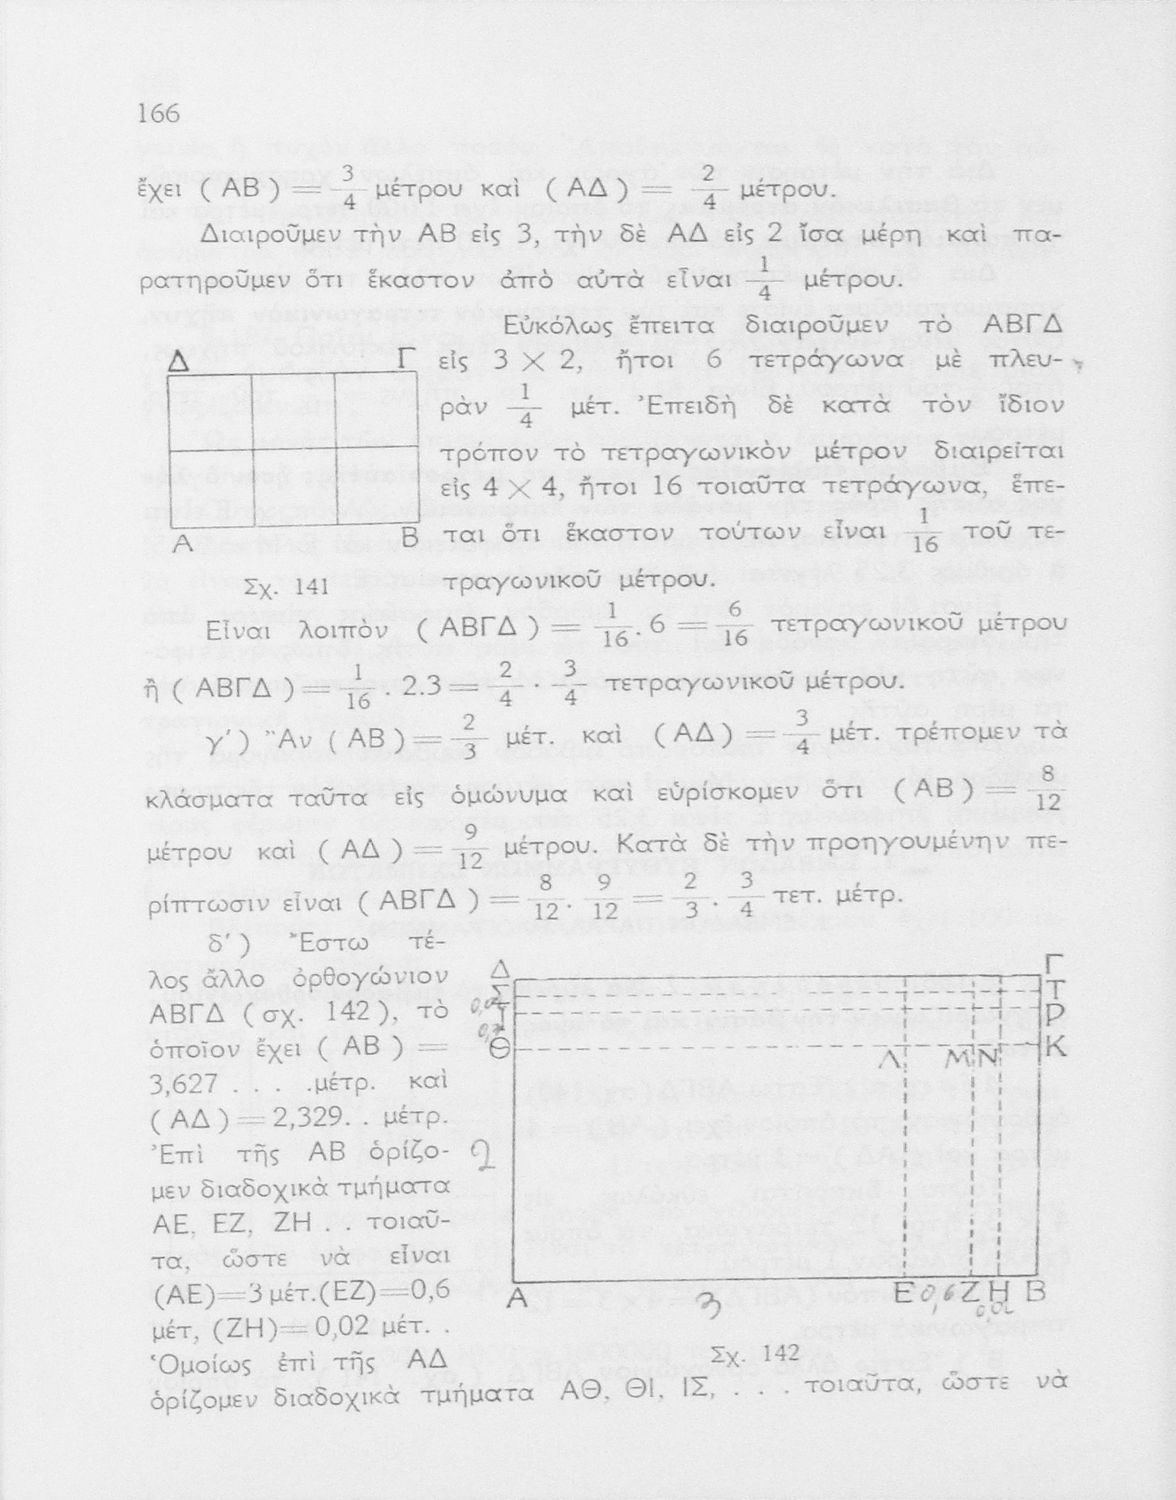 166
ἔχει ( ΑΒ ) = 3/4 μέτρου καὶ ( ΑΔ ) = 2/4 μέτρου.
Διαιροῦμεν τὴν ΑΒ εἰς 3, τὴν δὲ ΑΔ εἰς 2 ἴσα μέρη καὶ πα-
ρατηροῦμεν ὅτι ἕκαστον ἀπὸ αὐτὰ εἶναι 1/4 μέτρου.
Εὐκόλως ἔπειτα διαιροῦμεν τὸ ΑΒΓΔ
εἰς 3 × 2, ἤτοι 6 τετράγωνα μὲ πλευ-
ρὰν 1/4 μέτ. Ἐπειδὴ δὲ κατὰ τὸν ἴδιον
τρόπον τὸ τετραγωνικὸν μέτρον διαιρεῖται
εἰς 4 × 4, ἤτοι 16 τοιαῦτα τετράγωνα, ἕπε-
ται ὅτι ἕκαστον τούτων εἶναι 1/16 τοῦ τε-
τραγωνικοῦ μέτρου.
Δ Γ
Α Β
Σχ. 141
Εἶναι λοιπὸν ( ΑΒΓΔ ) = 1/16 . 6 = 6/16 τετραγωνικοῦ μέτρου
ἢ ( ΑΒΓΔ ) = 1/16 . 2.3 = 2/4 · 3/4 τετραγωνικοῦ μέτρου.
γ′ ) Ἂν ( ΑΒ ) = 2/3 μέτ. καὶ ( ΑΔ ) = 3/4 μέτ. τρέπομεν τὰ
κλάσματα ταῦτα εἰς ὁμώνυμα καὶ εὑρίσκομεν ὅτι ( ΑΒ ) = 8/12
μέτρου καὶ ( ΑΔ ) = 9/12 μέτρου. Κατὰ δὲ τὴν προηγουμένην πε-
ρίπτωσιν εἶναι ( ΑΒΓΔ ) = 8/12 . 9/12 = 2/3 . 3/4 τετ. μέτρ.
δ′ ) Ἔστω τέ-
λος ἄλλο ὀρθογώνιον
ΑΒΓΔ ( σχ. 142 ), τὸ
ὁποῖον ἔχει ( ΑΒ ) =
3,627 . . . .μέτρ. καὶ
( ΑΔ ) = 2,329. . μέτρ.
Ἐπὶ τῆς ΑΒ ὁρίζο-
μεν διαδοχικὰ τμήματα
ΑΕ, ΕΖ, ΖΗ . . τοιαῦ-
τα, ὥστε νὰ εἶναι
(ΑΕ)=3 μέτ.(ΕΖ)=0,6
μέτ, (ΖΗ)= 0,02 μέτ. .
Ὁμοίως ἐπὶ τῆς ΑΔ
ὁρίζομεν διαδοχικὰ τμήματα ΑΘ, ΘΙ, ΙΣ, . . . τοιαῦτα, ὥστε νὰ
Δ Γ
Σ Τ
Ι Ρ
Θ Κ
Λ Μ Ν
2
Α 3 Ε 0,6 Ζ Η Β
0,02
Σχ. 142